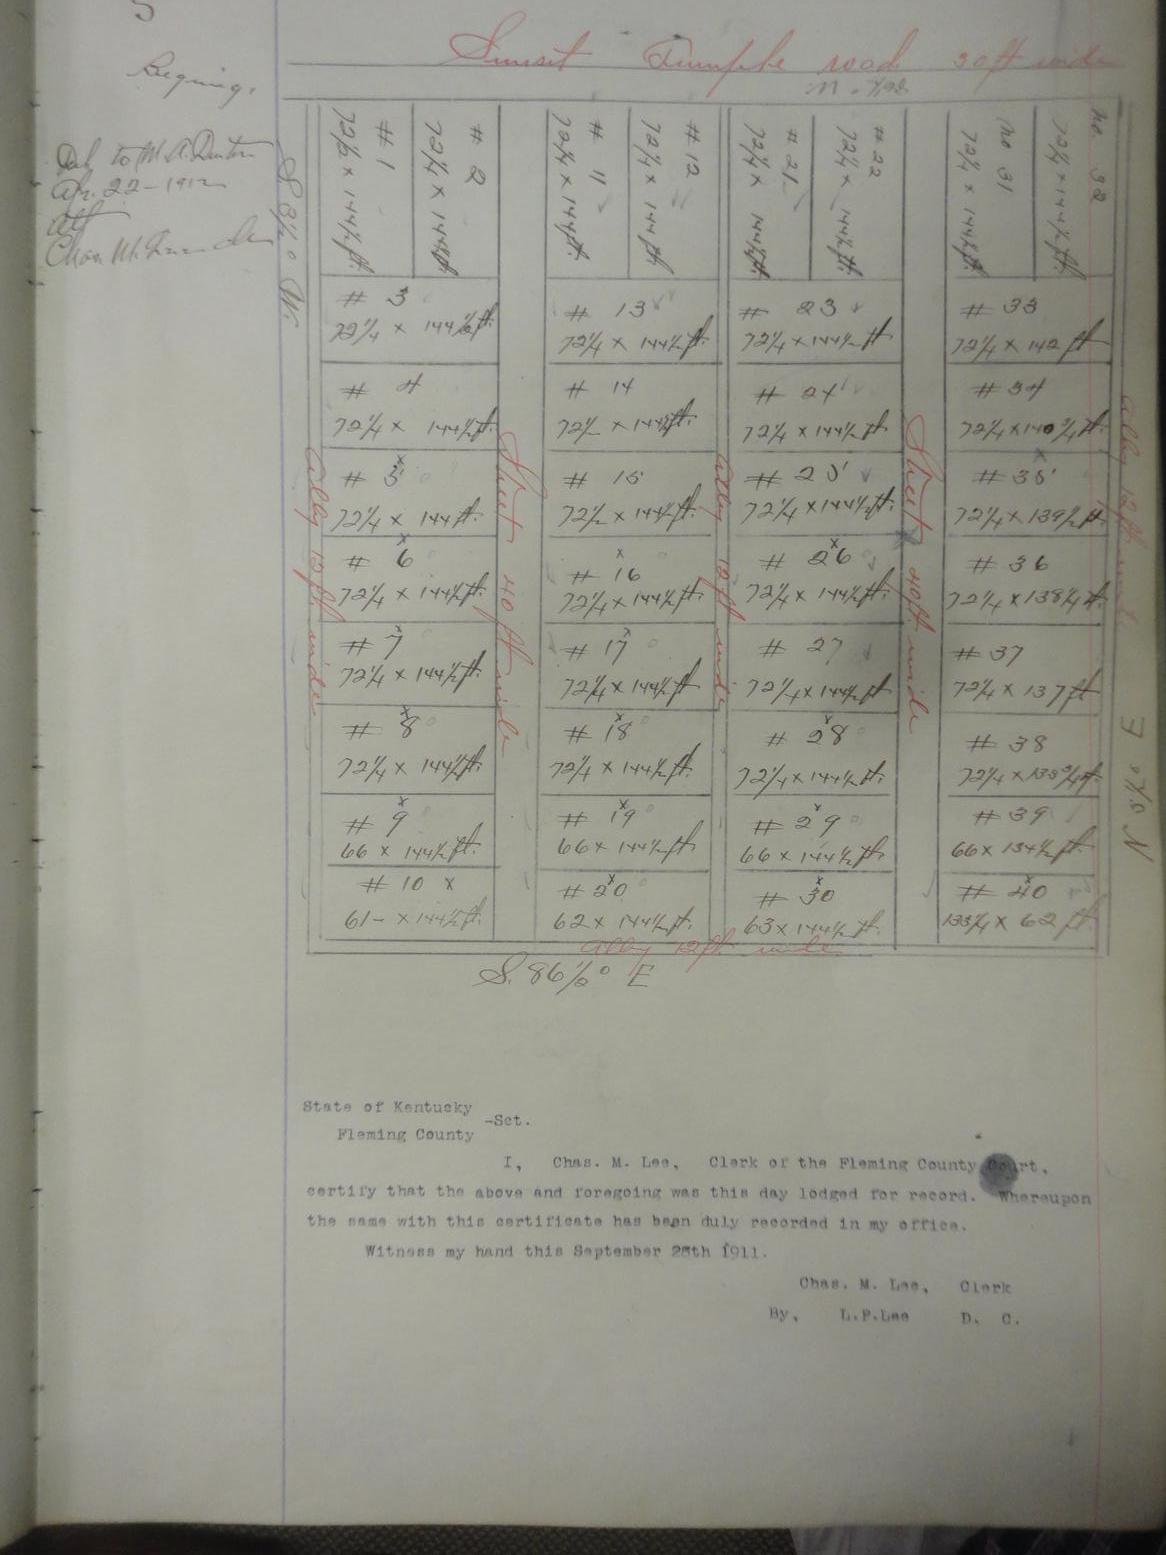 Sunset Turnpike road 30 ft wide
Beginning,
Del to M. A. Denton
Apr. 22-1912
Att
S 3½° W.
# 1
72¼ x 144½ ft.
# 2
72¼ x 144½ ft
# 11
72¼ x 144 ft.
# 12
72¼ x 144 ft
# 21
72¼ x 144½ ft.
# 22
72¼ x 144½ ft.
No 31
72¼ x 144½ ft.
No. 32
72¼ x 144½ ft.
# 3
72¼ x 144½ ft.
# 13
72¼ x 144½ ft.
# 23
72¼ x 144½ ft
# 33
72¼ x 142 ft
# 4
72¼ x 144½ ft.
# 14
72½ x 144½ ft.
# 24
72¼ x 144½ ft
# 34
72¼ x 140¼ ft.
# 5 x
72¼ x 144 ft.
# 15
72½ x 144½ ft.
# 25
72¼ x 144½ ft.
# 35 x
72¼ x 139½ ft
# 6 x
72¼ x 144½ ft.
# 16 x
72¼ x 144½ ft.
# 26 x
72¼ x 144½ ft.
# 36
72¼ x 138¼ ft.
# 7 x
72¼ x 144½ ft.
# 17 x
72¼ x 144½ ft
# 27
72¼ x 144½ ft
# 37
72¼ x 137 ft
# 8 x
72¼ x 144½ ft.
# 18 x
72¼ x 144½ ft.
# 28 x
72¼ x 144½ ft.
# 38
72¼ x 135¾ ft
# 9 x
66 x 144½ ft.
# 19 x
66 x 144½ ft.
# 29 x
66 x 144½ ft.
# 39
66 x 134½ ft
# 10 x
61- x 144½ ft.
# 20 x
62 x 144½ ft.
# 30 x
63 x 144½ ft.
# 40 x
133¼ x 62 ft
Alley 12 ft wide
Street 40 ft wide
Alley 12 ft wide
Street 40 ft wide
Alley 12 ft wide
N 5½° E
Alley 12 ft wide
S. 86½° E
State of Kentucky
-Sct.
Fleming County
I, Chas. M. Lee, Clerk of the Fleming County Court,
certify that the above and foregoing was this day lodged for record. Whereupon
the same with this certificate has been duly recorded in my office.
Witness my hand this September 28th 1911.
Chas. M. Lee, Clerk
By, L.P.Lee D. C.